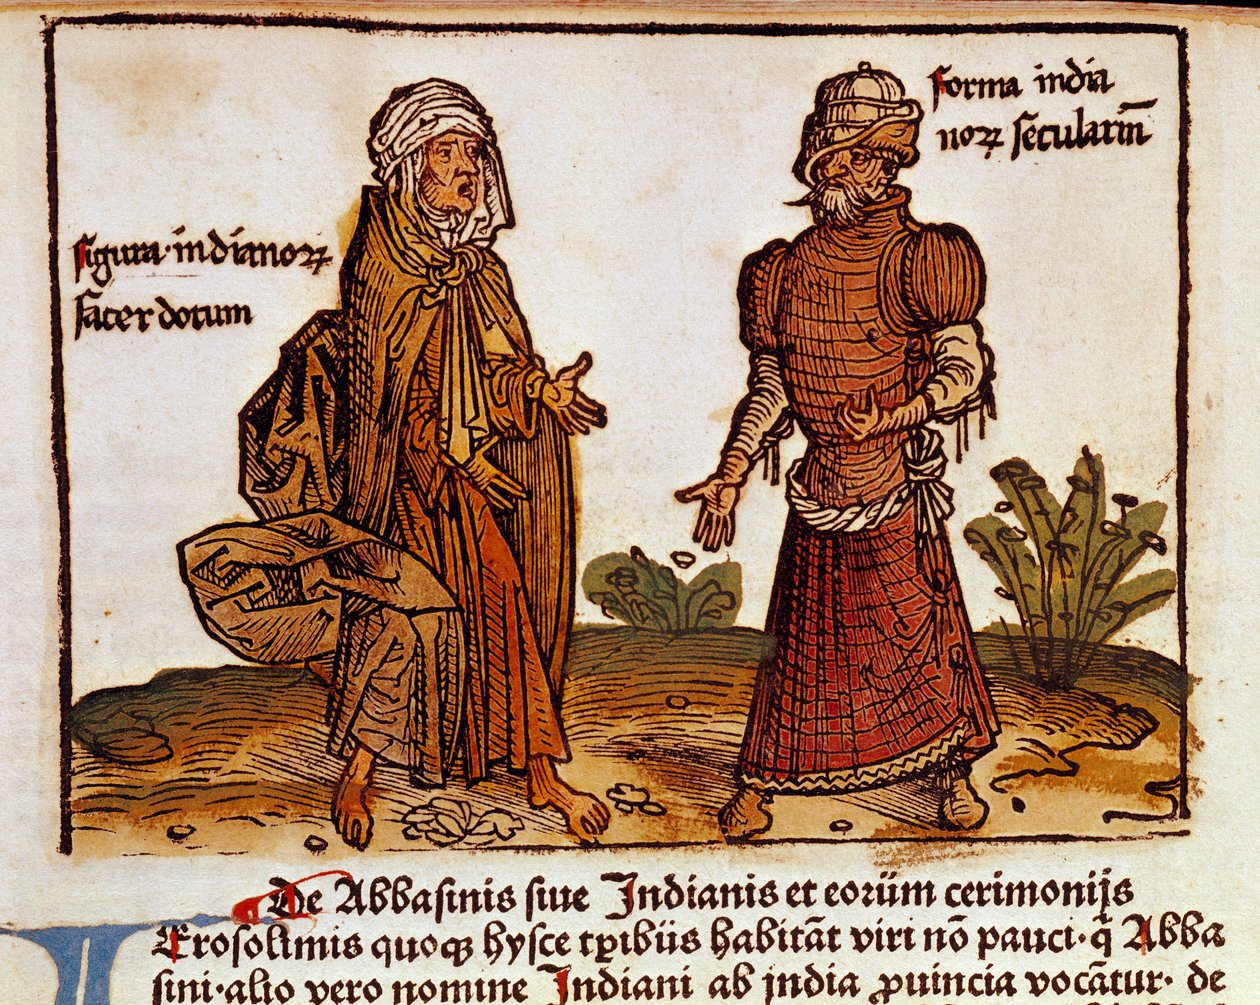 figura·indianoꝝ
sacerdotum
forma india
noꝝ seculariū
De Abbasinis siue Indianis et eorūm cerimonijs
Ierosolimis quoqꝫ hysce tꝑibūs habitāt viri nō pauci·q̄ Abba
sini·alio vero nomine Indiani ab india ꝓuincia vocātur· de